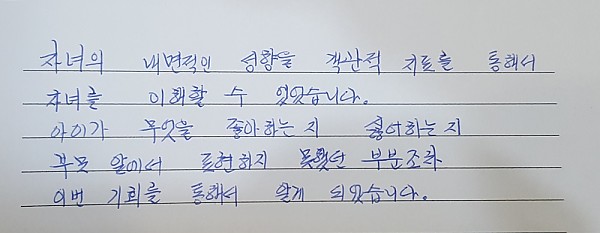 자녀의 내면적인 성향을 객관적 지표를 통해서
자녀를 이해할 수 있었습니다.
아이가 무엇을 좋아하는지 싫어하는지
부모 앞에서 표현하지 못했던 부분조차
이번 기회를 통해서 알게 되었습니다.